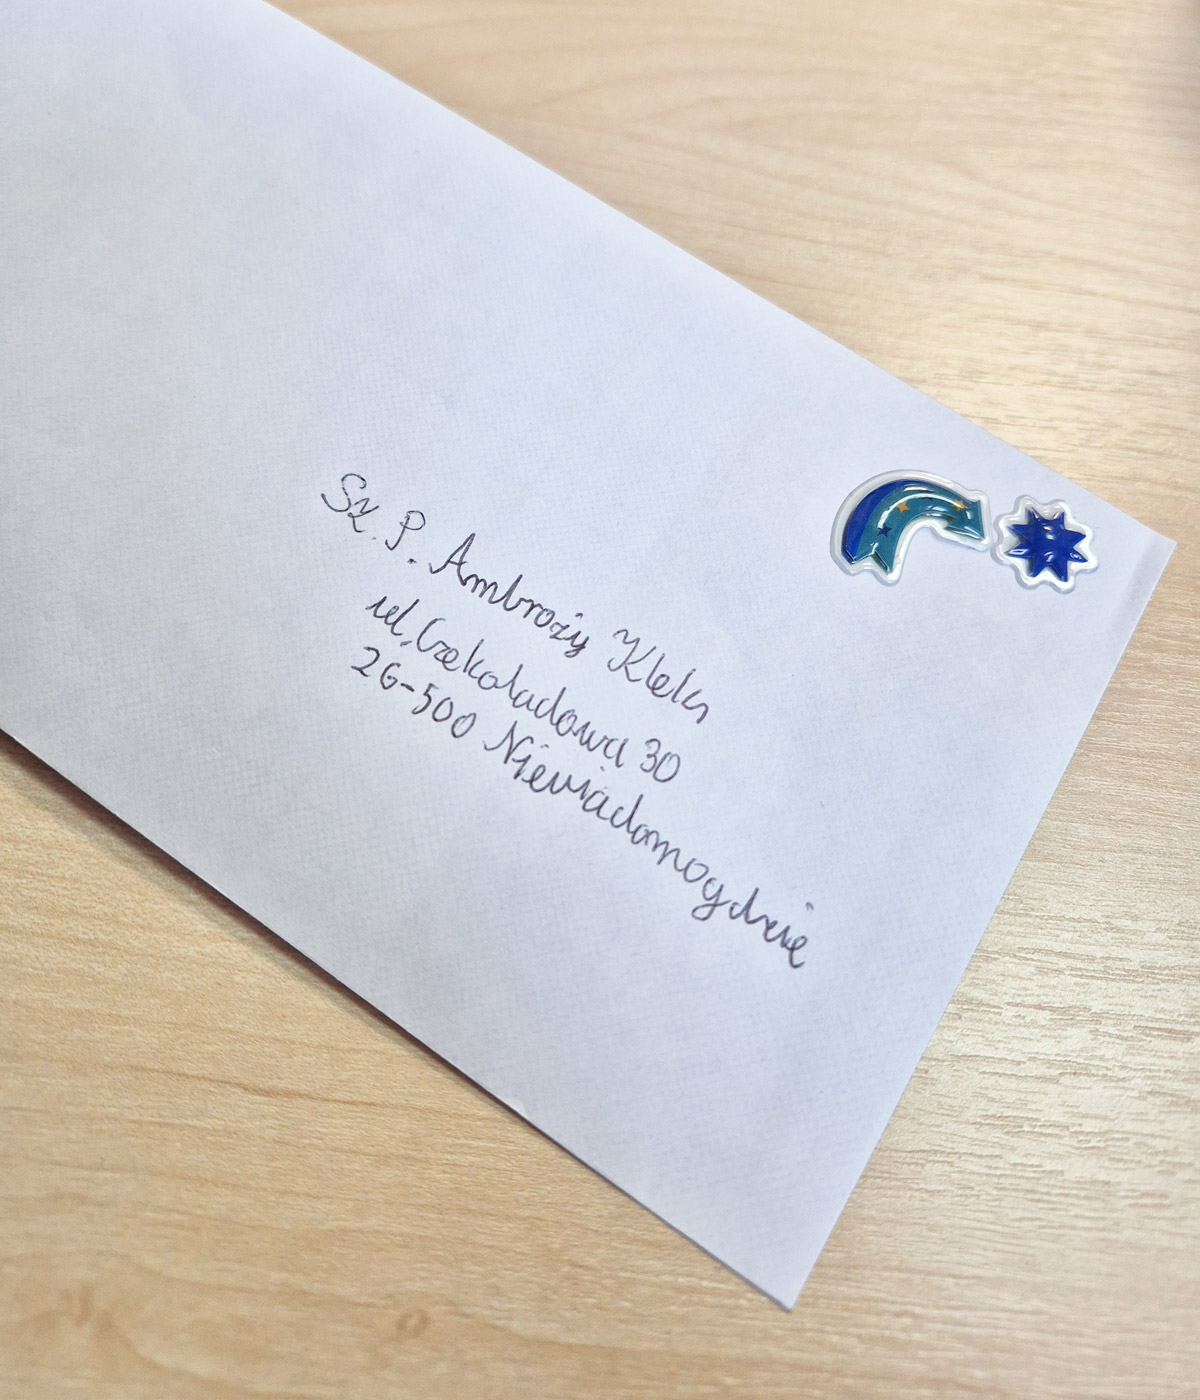 Sz. P. Ambroży Kleks
ul. Czekoladowa 30
26-500 Niewiadomogdzie